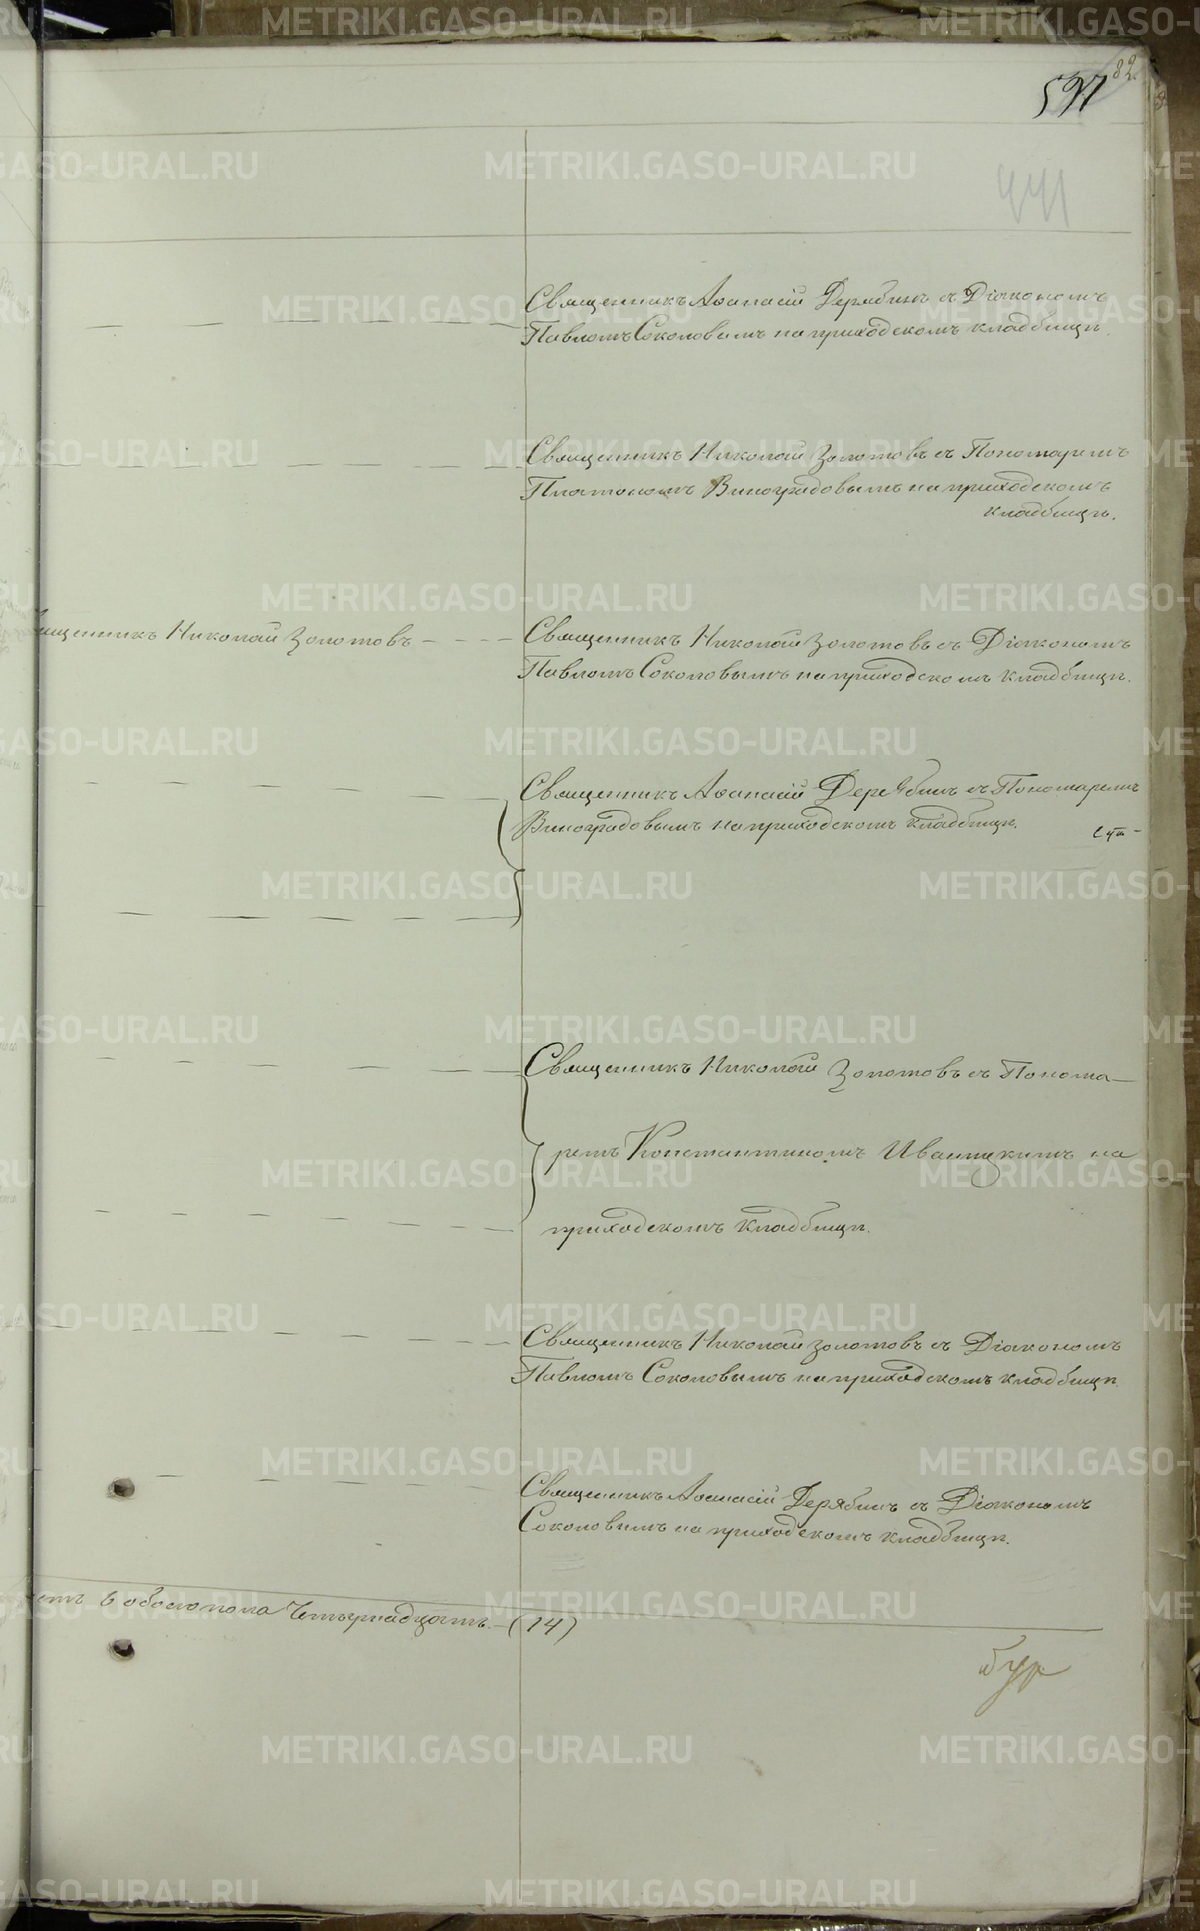 82
597
441
Священникъ Аѳанасій Дерябинъ съ Діакономъ
Павломъ Соколовымъ на приходскомъ кладбищѣ.
Священникъ Николай Золотовъ съ Пономаремъ
Платономъ Виноградовымъ на приходскомъ
кладбищѣ.
Священникъ Николай Золотовъ – – – –
Священникъ Николай Золотовъ съ Діакономъ
Павломъ Соколовымъ на приходскомъ кладбищѣ.
Священникъ Аѳанасій Дерябинъ съ Пономаремъ
Виноградовымъ на приходскомъ кладбищѣ.
Священникъ Николай Золотовъ съ Понома–
ремъ Константиномъ Иваницкимъ на
приходскомъ кладбищѣ.
Священникъ Николай Золотовъ съ Діакономъ
Павломъ Соколовымъ на приходскомъ кладбищѣ.
Священникъ Аѳанасій Дерябинъ съ Діакономъ
Соколовымъ на приходскомъ кладбищѣ.
обоего пола Четырнадцать. – (14)
METRIKI.GASO-URAL.RU